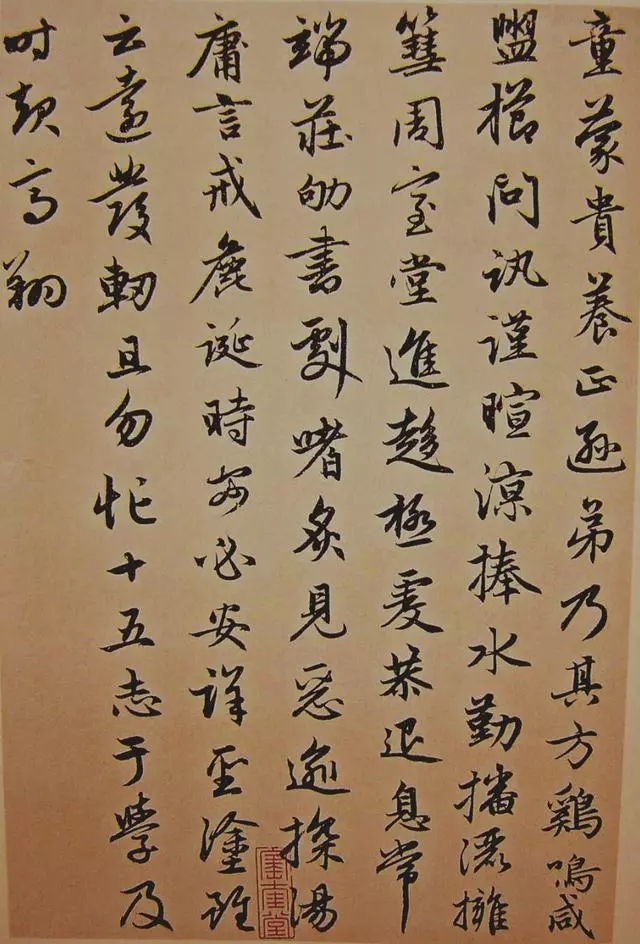 童蒙貴養正遜弟乃其方鷄鳴咸
盥櫛問訊謹暄涼捧水勤播灑擁
篲周室堂進趍極虔恭退息常
端莊劬書劇嗜炙見惡逾探湯
庸言戒麁誕時行必安詳聖塗雖
云遠發軔且勿忙十五志于學及
时起高翔